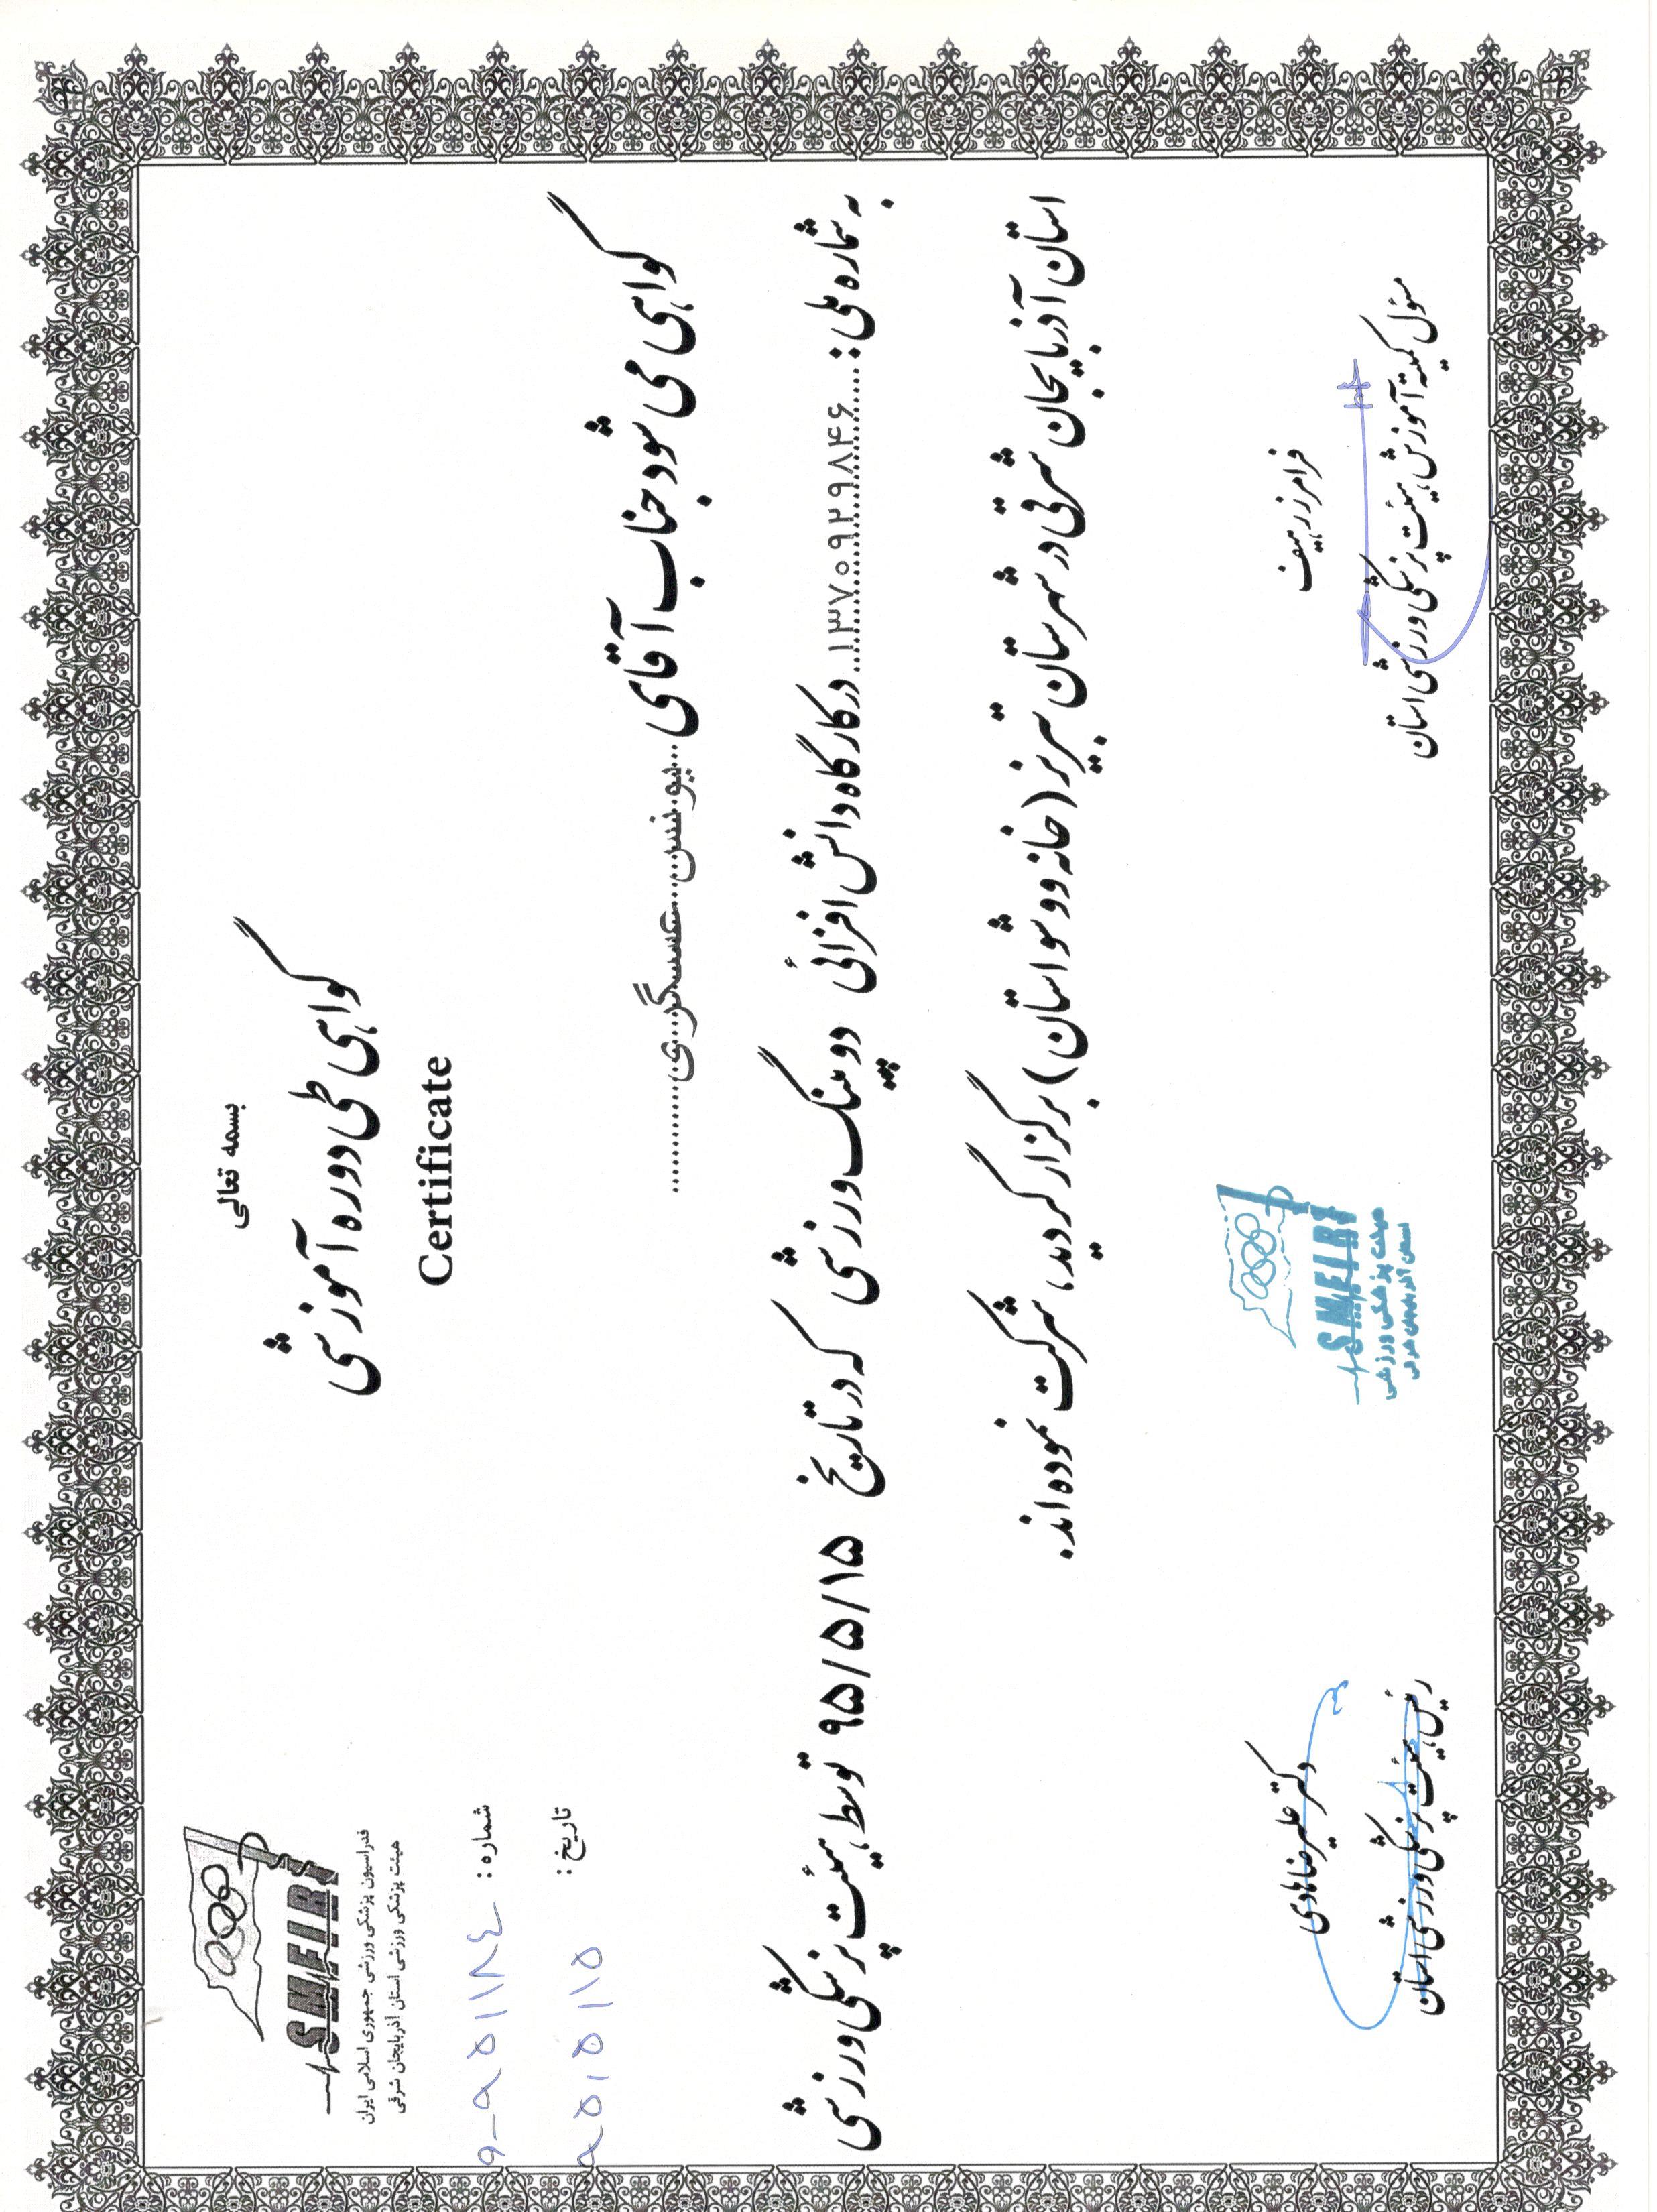 بسمه تعالی
گواهی طی دوره آموزشی
Certificate
SMFIRI
فدراسیون پزشکی ورزشی جمهوری اسلامی ایران
هیئت پزشکی ورزشی استان آذربایجان شرقی
شماره :
تاریخ : ۹۵/۵/۱۵
گواهی می شود جناب آقای ...یونس...عسگری...........
به شماره ملی : .....۱۳۷۰۹۲۹۸۴۶..... در کارگاه دانش افزائی دوپینگ ورزشی که در تاریخ ۹۵/۵/۱۵ توسط هیئت پزشکی ورزشی
استان آذربایجان شرقی در شهرستان تبریز (خانه ووشو استان) برگزار گردید، شرکت نموده اند.
فرامرز رهیف
مسئول کمیته آموزش هیئت پزشکی ورزشی استان
SMFIRI
هیئت پزشکی ورزشی
استان آذربایجان شرقی
دکتر علیرضا هادی
رئیس هیئت پزشکی ورزشی استان